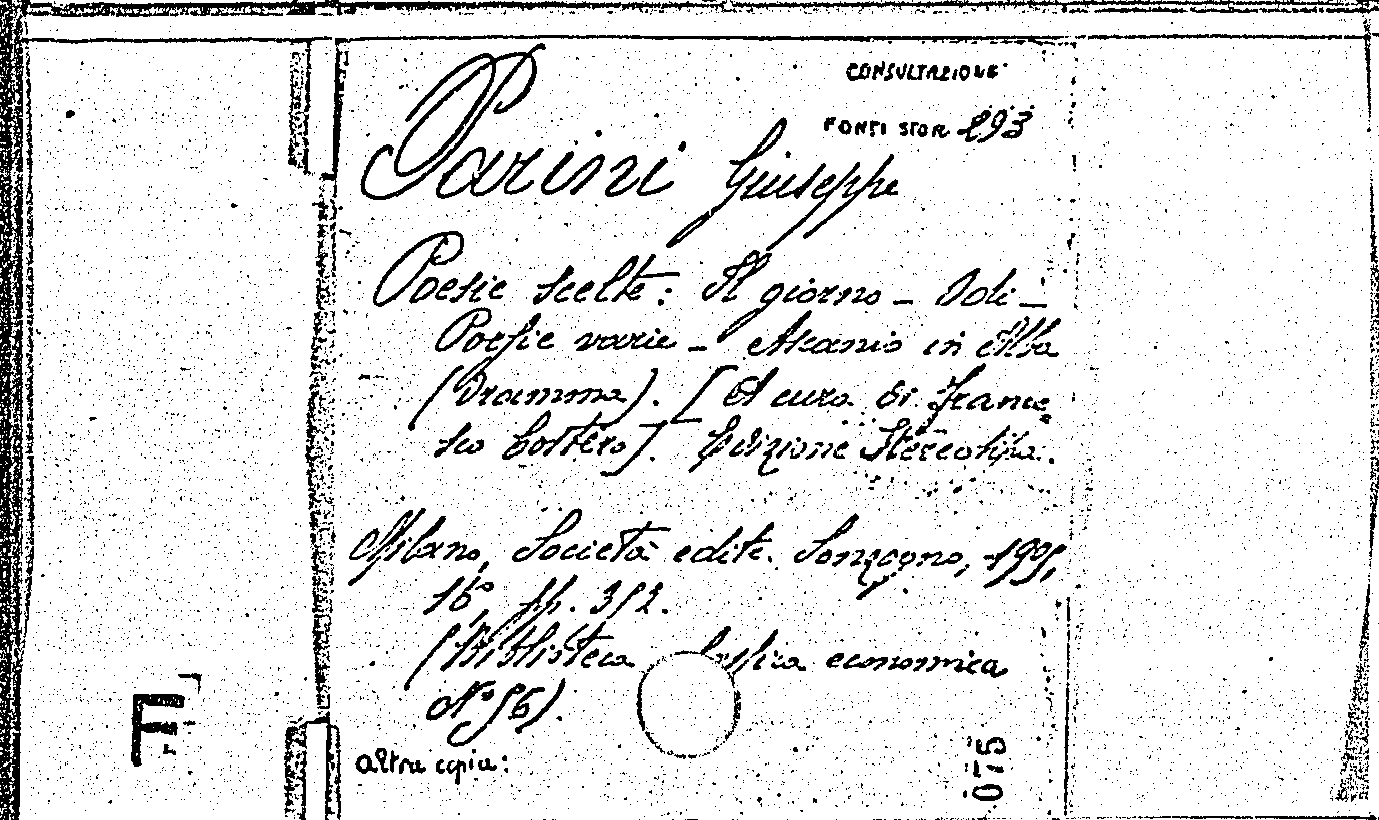 CONSULTAZIONE
FONTI STOR 293
Parini Giuseppe
Poesie scelte: Il giorno - Odi -
Poesie varie - Ascanio in Alba
(Dramma). [A cura di France=
sco Costero]. Edizione Stereotipa.
Milano, Società edit. Sonzogno,
16°, pp. 352.
(Biblioteca lassica economica
N° 56).
altra copia:
F
015